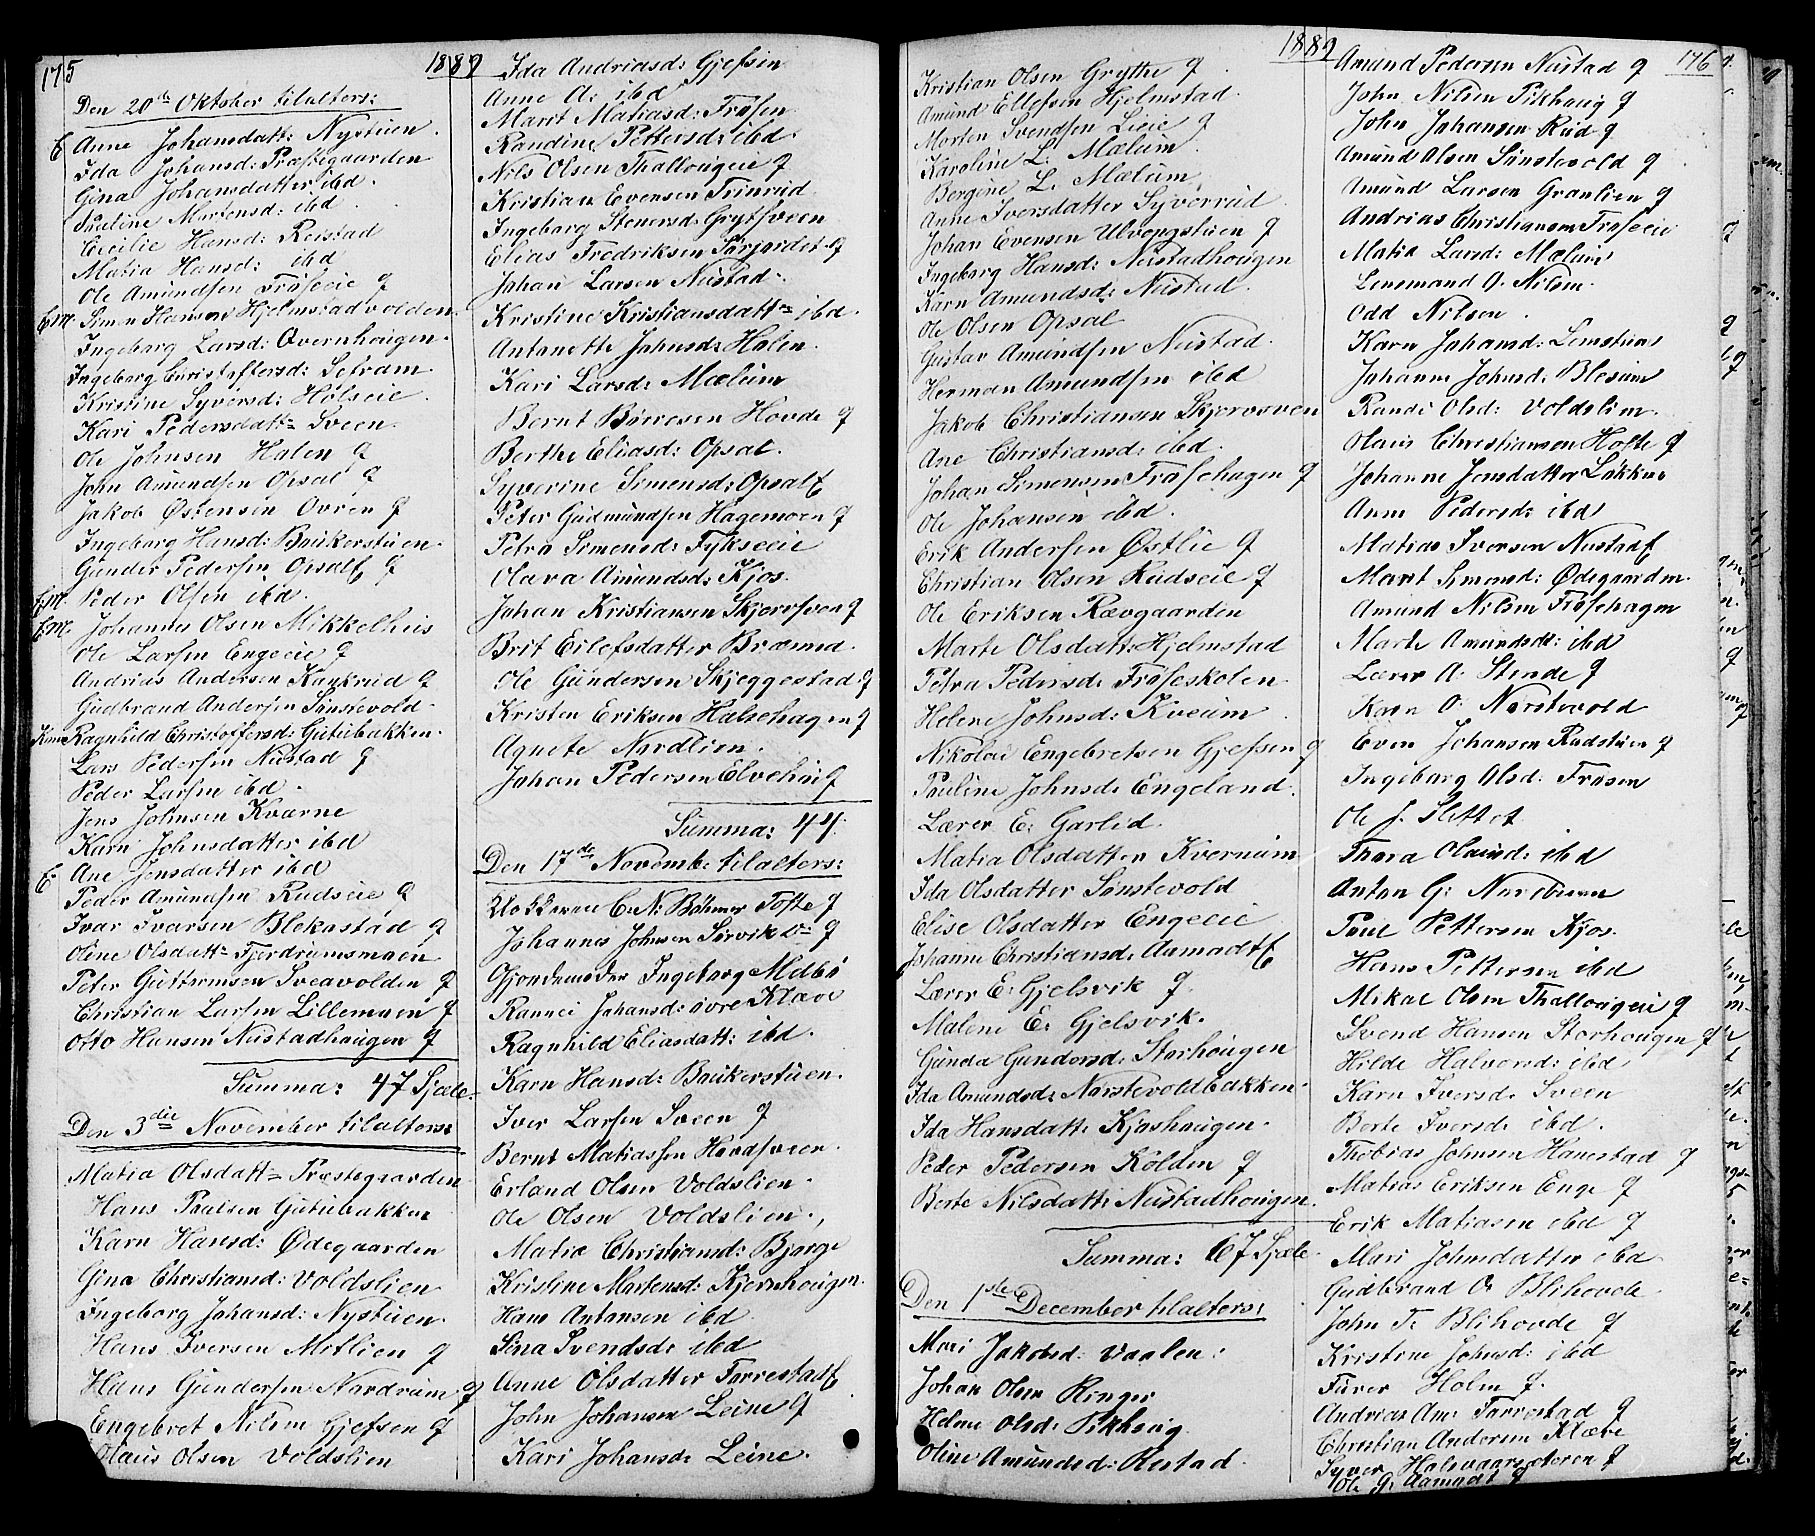 175
1889
Den 20de Oktober tilalters:
E Anne Johansdatt: Nystuen.
Ida Johansd: Præstegaarden
Gina Johansdatter ibd.
Pauline Martensd: ibd.
Cecilie Hansd: Reistad
Matia Hansd: ibd
Ole Amundsen Frøseeie g
E.M. Simen Hansen Hjelmstadvolden.
Ingeborg Larsd: Øvernhougen.
Ingeborg Christoffersd: Setram
Kristine Syversd: Holseie.
Kari Pedersdatt= Sveen.
Ole Johnsen Holen g
John Amundsen Opsal g
Jakob Østensen Ovren g
Ingeborg Hansd: Baukerstuen.
Gunder Pedersen Opsal g
E.M. Peder Olsen ibd.
E.M. Johannes Olsen Mikkelhus
Ole Larsen Engeeie g
Andrias Andersen Kaukrud g
Gudbrand Andersen Sønstevold.
Ragnhild Christoffersd: Gutubakken.
Lars Pedersen Nustad g
Peder Larsen ibd.
Jens Johnsen Kværne
Karn Johnsdatter ibd
E Ane Jensdatter ibd
Peder Amundsen Rudseie g
Ivar Ivarsen Blekastad g
Oline Olsdatt= Fjerdrumsmoen
Peter Guttormsen Sveavolden g
Christian Larsen Lillemoen g
Otto Hansen Nustadhaugen g
Summa: 47 Sjæle.
Den 3die November tilalters:
Matia Olsdatt= Præstegaarden
Hans Paulsen Gutubakken
Karn Hansd: Ødegaarden
Gina Christiansd: Voldslien
Ingeborg Johansd: Nystuen.
Hans Iversen Mitlien g
Hans Gundersen Nordrum g
Engebret Nilsen Gjefsen g
Olaus Olsen Voldslien
Ida Andriasd: Gjefsen
Anne A: ibd
Marit Matiasd: Frøsen.
Randine Pettersd: ibd.
Nils Olsen Thallougen g
Kristian Evensen Trinrud
Ingeborg Stenersd: Grytsveen
Elias Fredriksen Sørjordet g
Johan Larsen Nustad.
Kristine Kristiansdatt= ibd.
Antonette Johnsd: Holen.
Kari Larsd: Mælum
Bernt Børresen Hovde g
Berthe Eliasd: Opsal.
Syverine Simensd: Opsal
Peter Gudmundsen Hagemoen g
Petra Simensd: Fykseeie
Olava Amundsd: Kjos.
Johan Kristiansen Skjervsven g
Brit Eilefsdatter Bræmma.
Ole Gundersen Skjeggestad g
Kristen Eriksen Halsehagen g
Agnete Nordlien.
Johan Pedersen Elvehøi g
Summa: 44.
Den 17de Novembe: tilalters:
Klokkeren C. N. Bøhmer Tofte g
Johannes Johnsen Sørvik g
Gjordemoder Ingeborg Melbø
Rannei Johansd: øvre Klæve
Ragnhild Eliasdatt: ibd.
Karn Hansd: Baukerstuen.
Iver Larsen Sveen g
Bernt Matiassen Hovdsveen.
Erland Olsen Voldslien.
Ole Olsen Voldslien.
Matia Christiansd: Bjørge
Kristine Martensd: Kjernhougen.
Hans Antonsen ibd.
Sina Svendsd: ibd
Anne Olsdatter Torrestad
John Johansen Leine g
Kari Johansd: Leine.
1889
176
Kristian Olsen Grytthe g
Amund Ellefsen Hjelmstad.
Morten Svendsen Lieie g
Karoline L. Mælum.
Bergine L. Mælum.
Anne Iversdatter Syverrud
Johan Evensen Ulvengstuen g
Ingeborg Hansd: Nustadhougen
Karn Amundsd: Nustad.
Ole Olsen Opsal
Gustav Amundsen Nustad.
Herman Amundsen ibd
Jakob Christiansen Skjervsven
Ane Christiansd: ibd.
Johan Simensen Frøsehagen g
Ole Johansen ibd.
Erik Andersen Østlie g
Christian Olsen Rudseie g
Ole Eriksen Rævgaarden
Marte Olsdatt: Hjelmstad
Petra Pedersd: Frøseskolen.
Helene Johnsd: Kveum.
Nikolai Engebretsen Gjefsen g
Pauline Johnsd: Engeland.
Lærer E: Garlid.
Matia Olsdatter Kvernum
Ida Olsdatter Sønstevold
Elise Olsdatter Engeeie
Johanne Christiansd: Aamodt
Lærer E: Gjelsvik g.
Malene E: Gjelsvik.
Gunda Gundersd: Storhougen
Ida Amundsd: Nørstevoldbakken.
Ida Hansdatt: Kjoshougen.
Peder Pedersen Kolden g
Berte Nilsdatt: Nustadhougen.
Summa: 67 Sjæle.
Den 1ste December tilalters:
Mari Jakobsd. Vaalen.
Johan Olsen Ringer
Helene Olsd: Pikhaug.
Oline Amundsd: Rustad.
Amund Pedersen Nustad g
John Nilsen Pikhaug g
John Johansen Rud g
Amund Olsen Sønstevold g
Amund Larsen Granlien g
Andrias Christiansen Frøseeie
Matia Larsd: Mælum
Lensmand O. Nilsen.
Odd Nilsen.
Karn Johansd: Lonstuen
Johanne Johnsd: Blesum
Randi Olsd: Voldslien.
Olaus Christiansen Hofte g
Johanne Jensdatter Løkken
Anne Pedersd: ibd
Matias Iversen Nustad
Marit Simensd: Ødegaarden.
Amund Nilsen Frøsehagen
Marte Amundsdt: ibd
Lærer A: Stende g
Karn O. Nørstevold
Even Johansen Rudstuen g
Ingeborg Olsd: Frøsen
Ole J. Slettet
Thora Olausd: ibd
Anton G: Nordtuen
Paul Pettersen Kjos.
Hans Pettersen ibd
Mikal Olsen Thallougen g
Svend Hansen Storhougen g
Hilde Halvorsd: ibd.
Karn Iversd: Sveen
Berte Iversd: ibd.
Thobias Johnsen Hanestad g
Matias Eriksen Enge g
Erik Matiasen ibd g
Mari Johnsdatter ibd.
Gudbrand O. Blihovde.
John T. Blihovde g
Kristine Johnsd: ibd
Furer Holm g.
Andrias Am: Torrestad g
Christian Andersen Klæve
Syver Halvaarseteren g
Ole G. Aamodt g